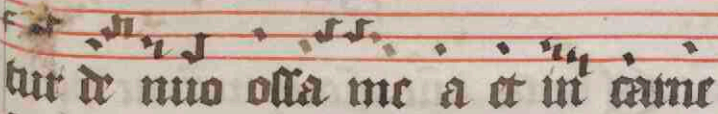 tur de nuo ossa me a et in carne